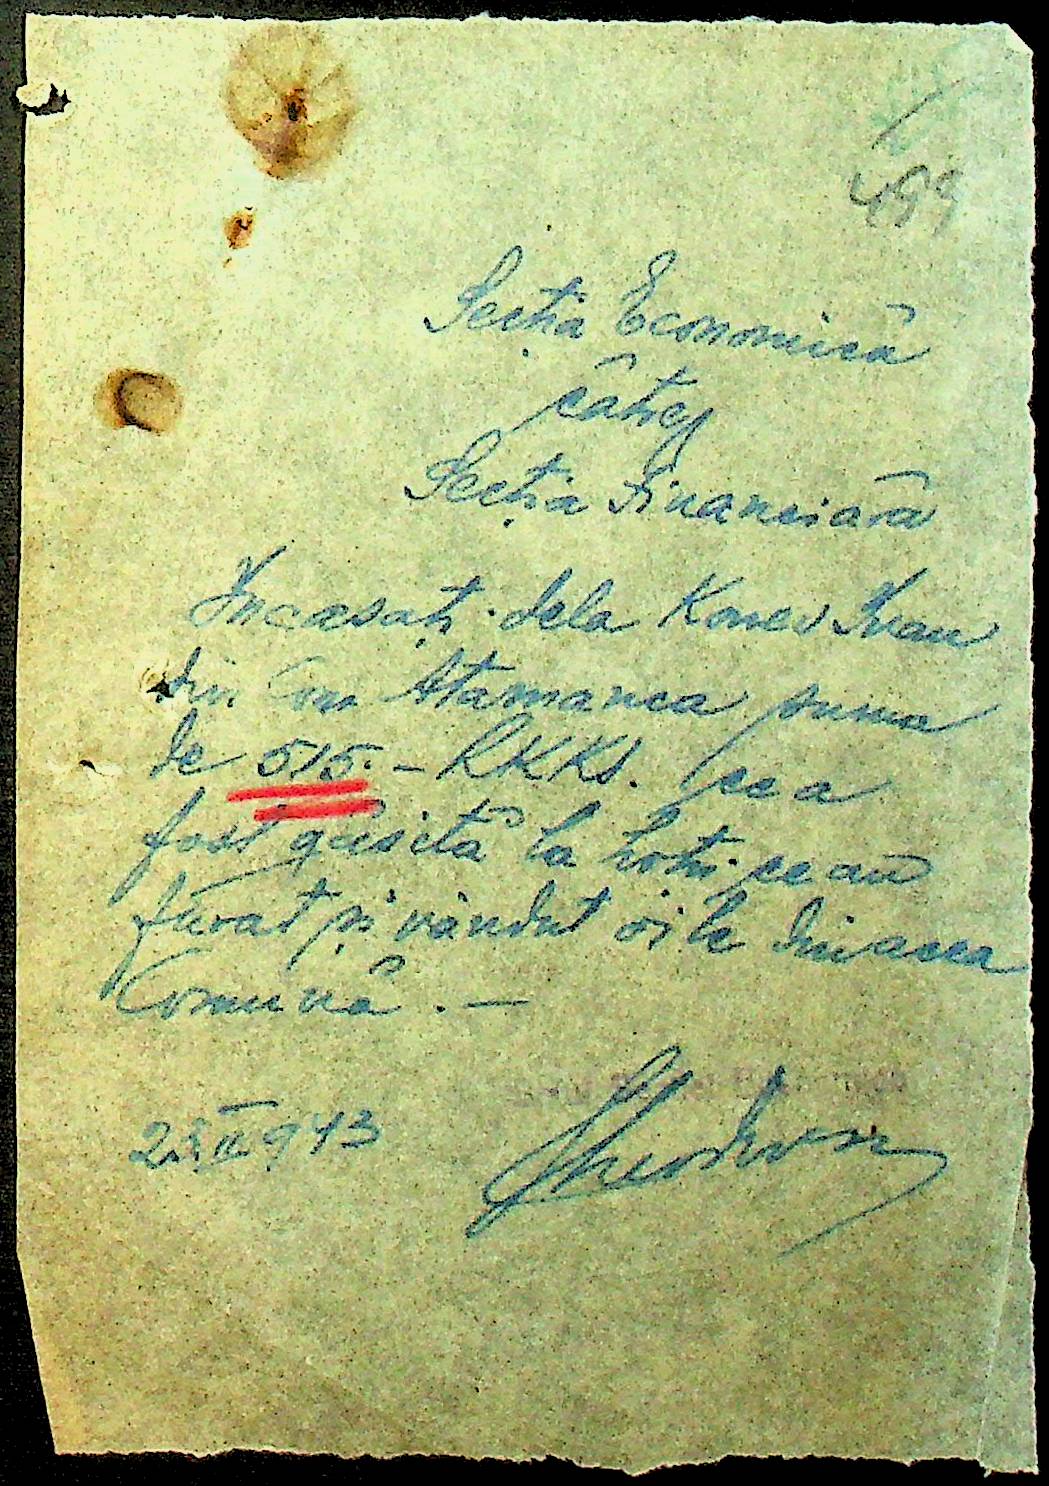 499
Secția Economică
către
Secția Financiară
Încasați dela Konev Ivan
din Com Atamanca suma
de 515.- RKKS. cea
fost găsită la hoți ce au
furat și vândut oile din acea
Comună. —
943